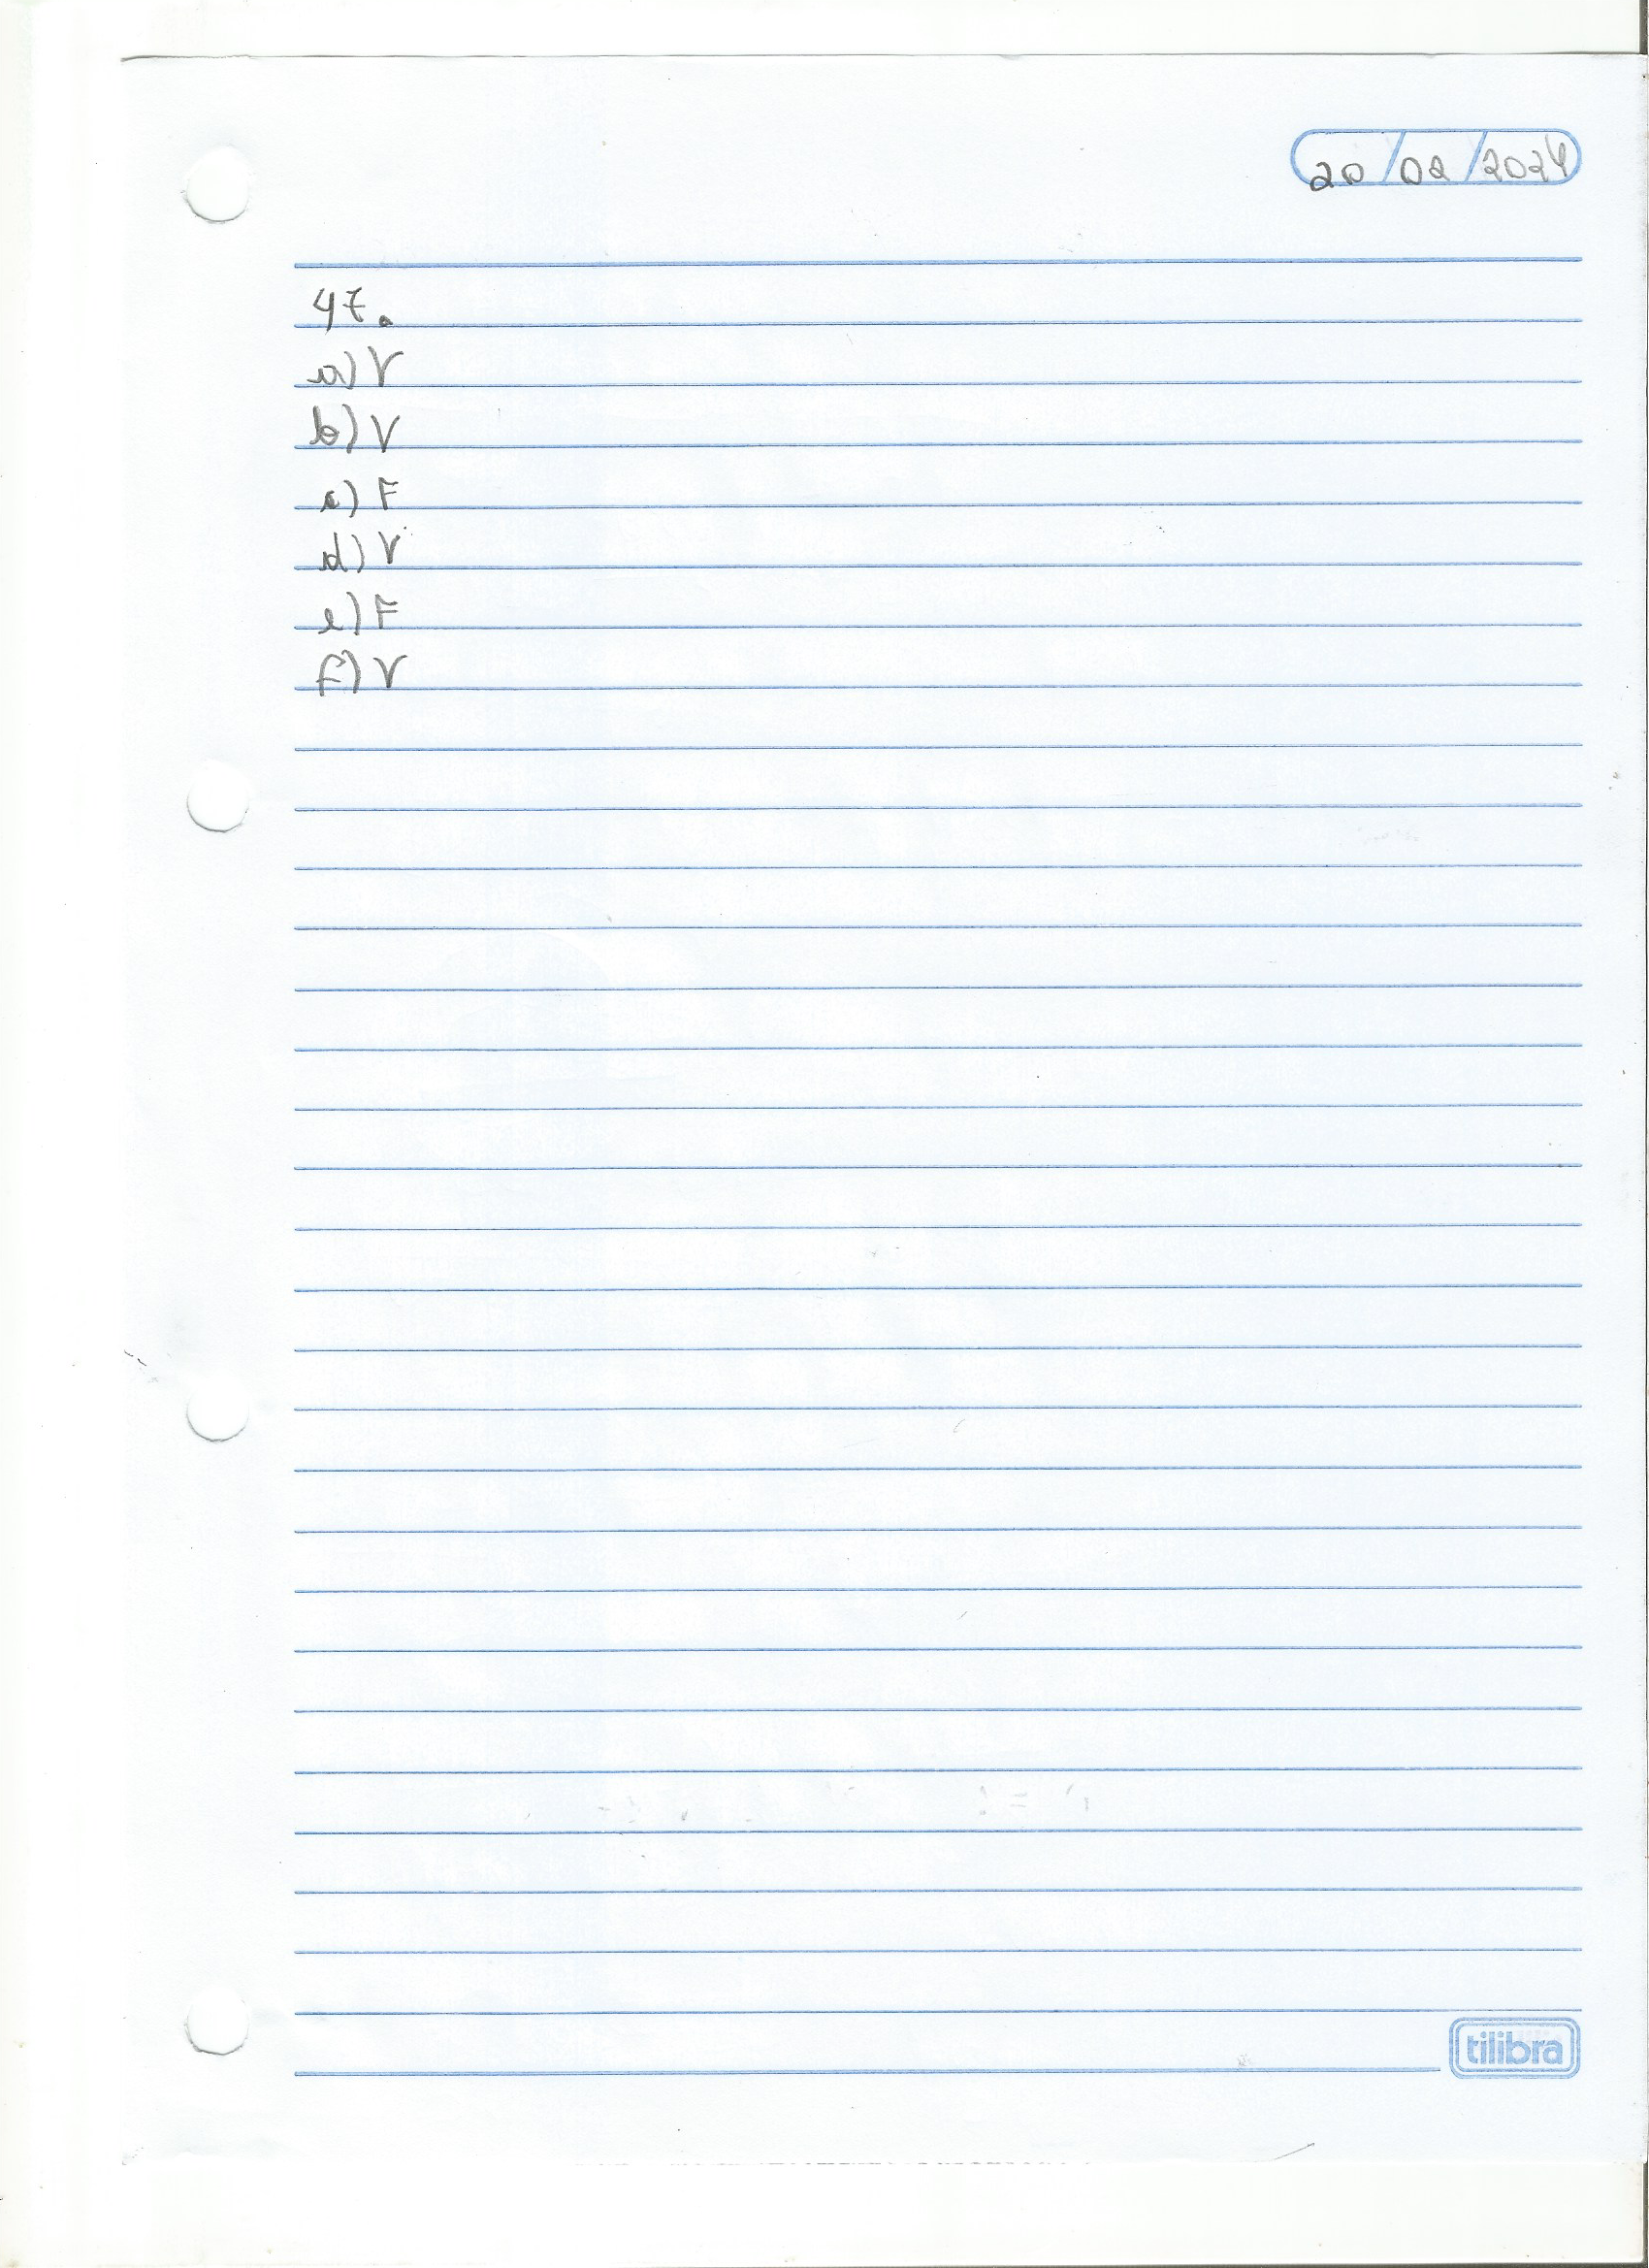 20/02/2024
47.
a) V
b) V
c) F
d) V
e) F
f) V
tilibra